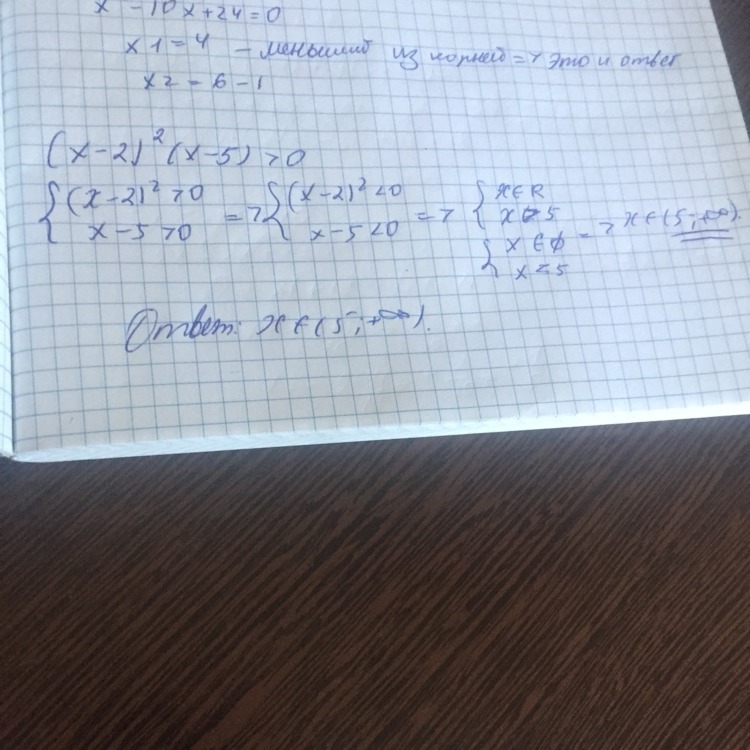 x² - 10x + 24 = 0
x1 = 4 – меньший из корней => Это и ответ
x2 = 6 - 1
(x-2)² (x-5) > 0
{ (x-2)² > 0 => { (x-2)² < 0 => { x ∈ R
x-5 > 0 x-5 < 0 x > 5
{ x ∈ ∅ => x ∈ (5; +∞).
x < 5
Ответ: x ∈ (5; +∞).